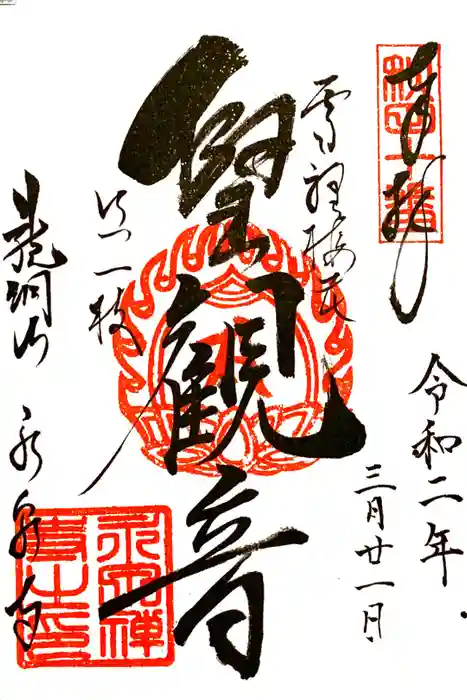 奉拝
令和二年
三月廿一日
雪裡梅花
只一枝
聖観音
龍洞山 永泉寺
永泉禅
寺之印